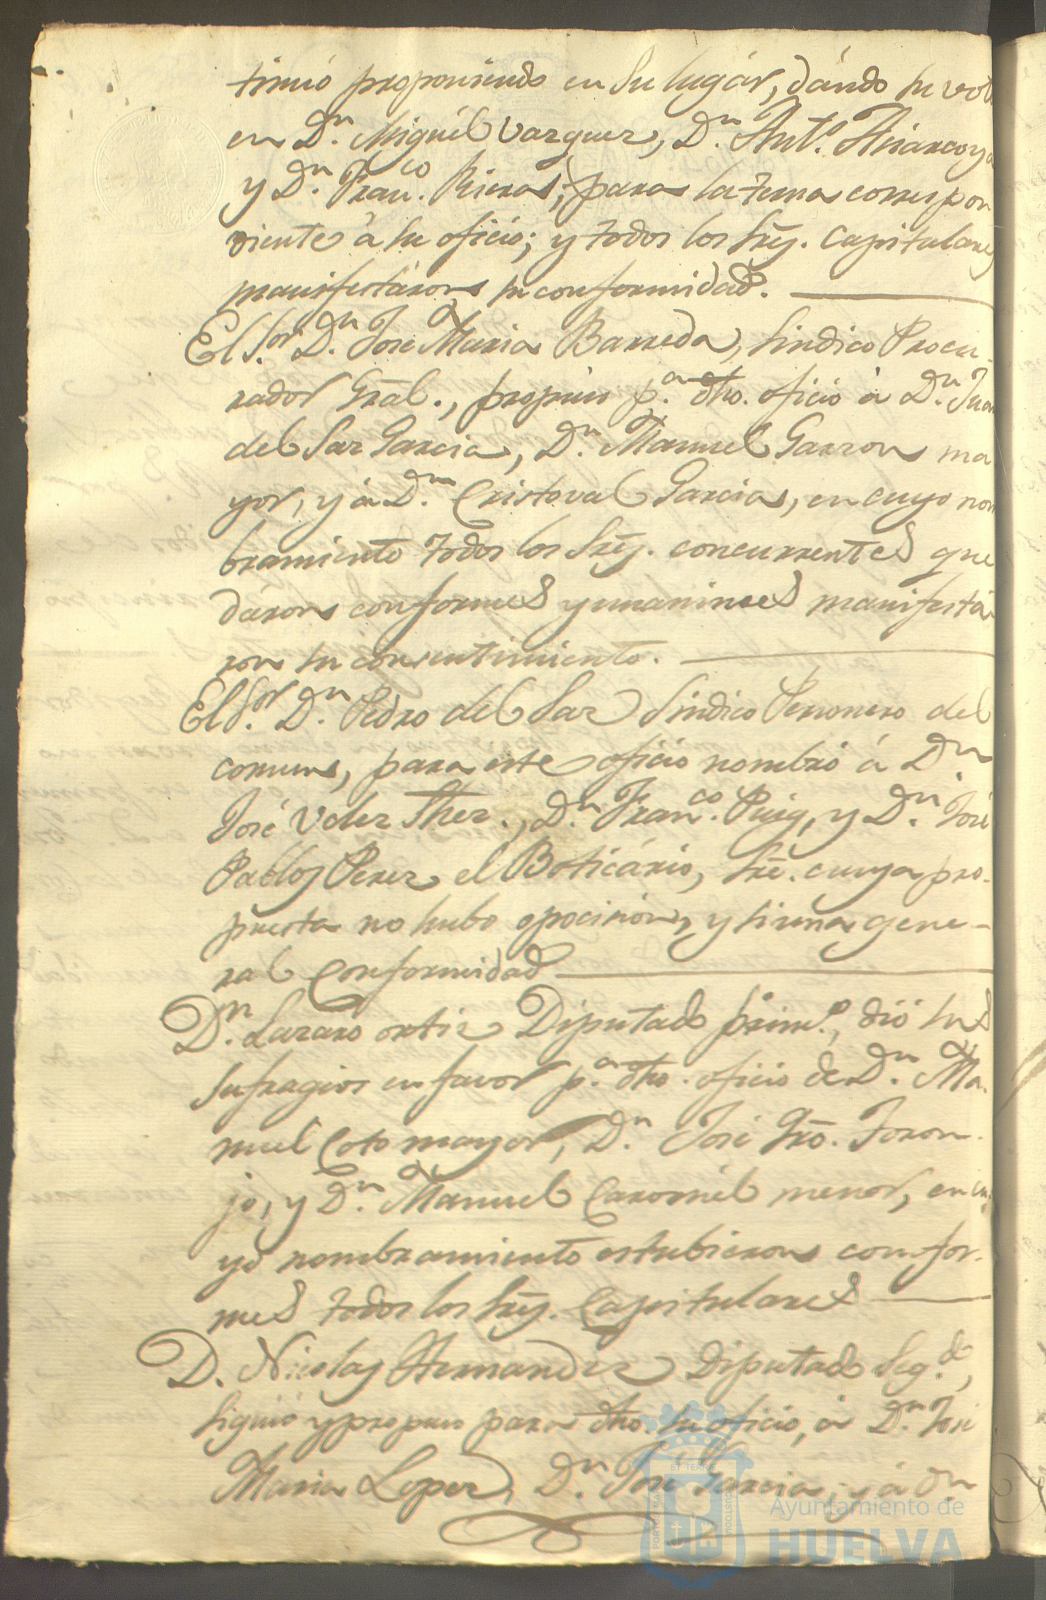 tinuó proponiendo en su lugár, dándo su voto
en Dn. Miguél Vazquez, Dn. Anto.
y Dn. Franco. Rieras, para la terna correspon
diente á su oficio; y todos los Srs. Capitulares
manifestáron su conformidad.
El Sor. Dn. José Maria Barreda, Sindico Procu-
rador Gral., propuso pa. dho. oficio á Dn. Juan
del Saz Garcia, Dn. Manuel Garzon ma
yor, y á Dn. Cristoval Garcia, en cuyo nom
bramiento todos los Srs. concurrentes que
dáron conformes y unanimes manifestá
ron su consentimiento.
El Sor. Dn. Pedro del Saz Sindico Personero del
comun, para este oficio nombró á Dn.
José Velez Shez., Dn. Franco. Puig, y Dn. José
Pablos Perez el Boticário, sre. cuya pro-
puesta no hubo opocision, y si una gene-
ral Conformidad
Dn. Lazaro Ortiz Diputado primo., dió sus
sufragios en favor pa. dho. oficio de Dn. Ma-
nuel Coto mayor, Dn. José Foron-
jo, y Dn. Manuel Coronél menor, en cu
yo nombramiento estubieron confor-
mes todos los Srs. Capitulares
D. Nicolas Hernandez Diputado Segdo.,
siguió y propuso para dho. su oficio, á Dn. José
Maria Lopez, Dn. José Garcia, y á Dn
Ayuntamiento de
HUELVA